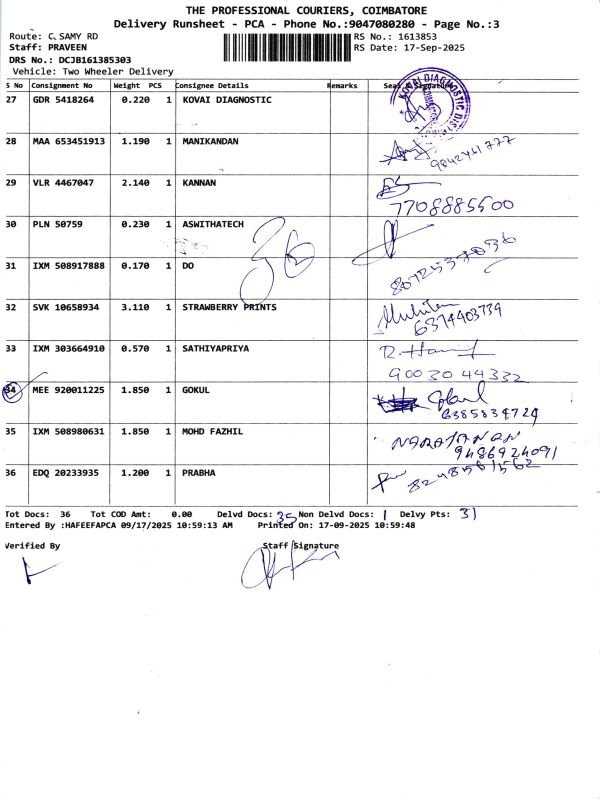 THE PROFESSIONAL COURIERS, COIMBATORE
Delivery Runsheet - PCA - Phone No.:9047080280 - Page No.:3
Route: C. SAMY RD
RS No.: 1613853
Staff: PRAVEEN
RS Date: 17-Sep-2025
DRS No.: DCJB161385303
Vehicle: Two Wheeler Delivery
S No Consignment No Weight PCS Consignee Details Remarks
27 GDR 5418264 0.220 1 KOVAI DIAGNOSTIC
28 MAA 653451913 1.190 1 MANIKANDAN
9842441777
29 VLR 4467047 2.140 1 KANNAN
7708885500
30 PLN 50759 0.230 1 ASWITHATECH
36
31 IXM 508917888 0.170 1 DO
8072537036
32 SVK 10658934 3.110 1 STRAWBERRY PRINTS
6374403739
33 IXM 303664910 0.570 1 SATHIYAPRIYA
9003044332
34 MEE 920011225 1.850 1 GOKUL
6385834729
35 IXM 508980631 1.850 1 MOHD FAZHIL
NARAYANAN
9486924091
36 EDQ 20233935 1.200 1 PRABHA
8248561562
Tot Docs: 36 Tot COD Amt: 0.00 Delvd Docs: 35 Non Delvd Docs: 1 Delvy Pts: 31
Entered By :HAFEEFAPCA 09/17/2025 10:59:13 AM Printed On: 17-09-2025 10:59:48
Verified By Staff Signature